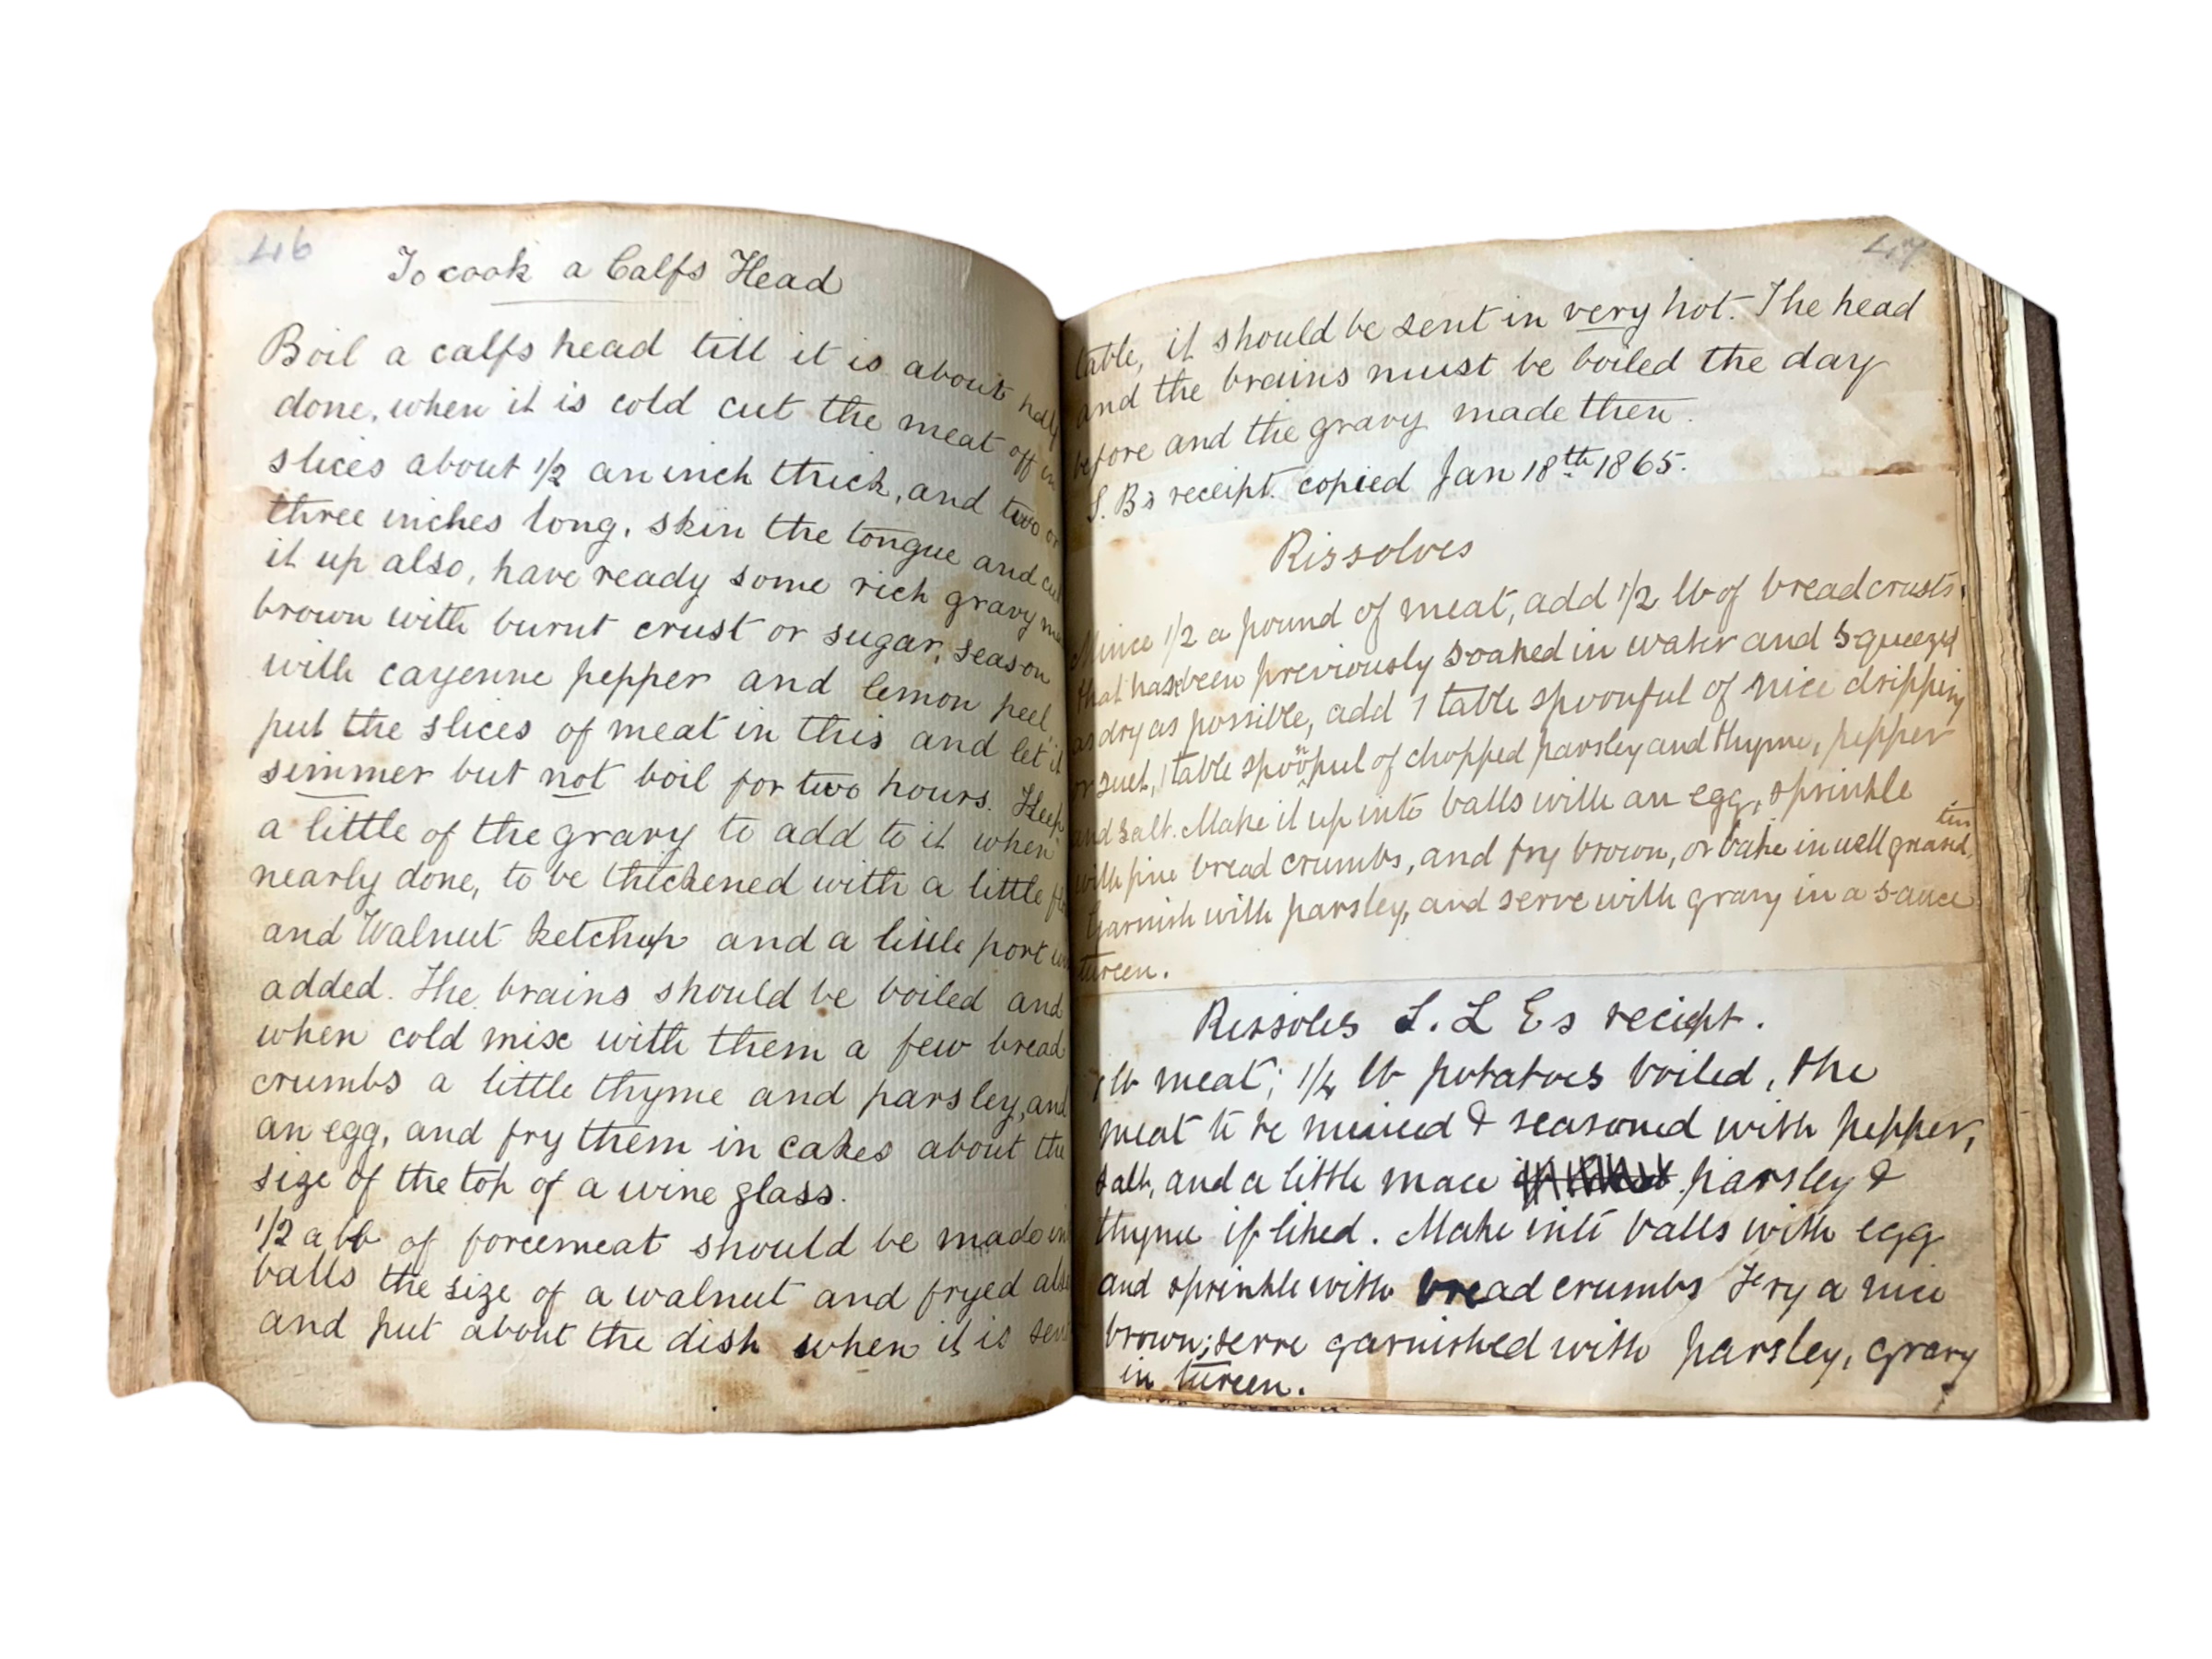 46
To cook a Calfs Head
Boil a calfs head till it is about half
done, when it is cold cut the meat off in
slices about 1/2 an inch thick, and two or
three inches long, skin the tongue and cut
it up also, have ready some rich gravy
brown with burnt crust or sugar, season
with cayenne pepper and lemon peel,
put the slices of meat in this and let it
simmer but not boil for two hours. Keep
a little of the gravy to add to it when
nearly done, to be thickened with a little
and Walnut Ketchup and a little port
added. The brains should be boiled and
when cold mix with them a few bread
crumbs a little thyme and parsley, and
an egg, and fry them in cakes about the
size of the top of a wine glass.
1/2 a lb of forcemeat should be made in
balls the size of a walnut and fryed also
and put about the dish when it is sent
47
table, it should be sent in very hot. The head
and the brains must be boiled the day
before and the gravy made then.
S. B's receipt. copied Jan 18th 1865.
Rissolves
Mince 1/2 a pound of meat, add 1/2 lb of breadcrusts,
that has been previously soaked in water and squeezed
as dry as possible, add 1 table spoonful of nice dripping
or suet, 1 table spoonful of chopped parsley and thyme, pepper
and salt. Make it up into balls with an egg, sprinkle
with fine bread crumbs, and fry brown, or bake in well greased tin,
Garnish with parsley, and serve with gravy in a sauce
tureen.
Rissoles S. L Es recipt.
1 lb meat; 1/4 lb potatoes boiled, the
meat to be minced & seasoned with pepper,
salt, and a little mace parsley &
thyme if liked. Make into balls with egg
and sprinkle with bread crumbs Fry a nice
brown; serve garnished with parsley, gravy
in tureen.